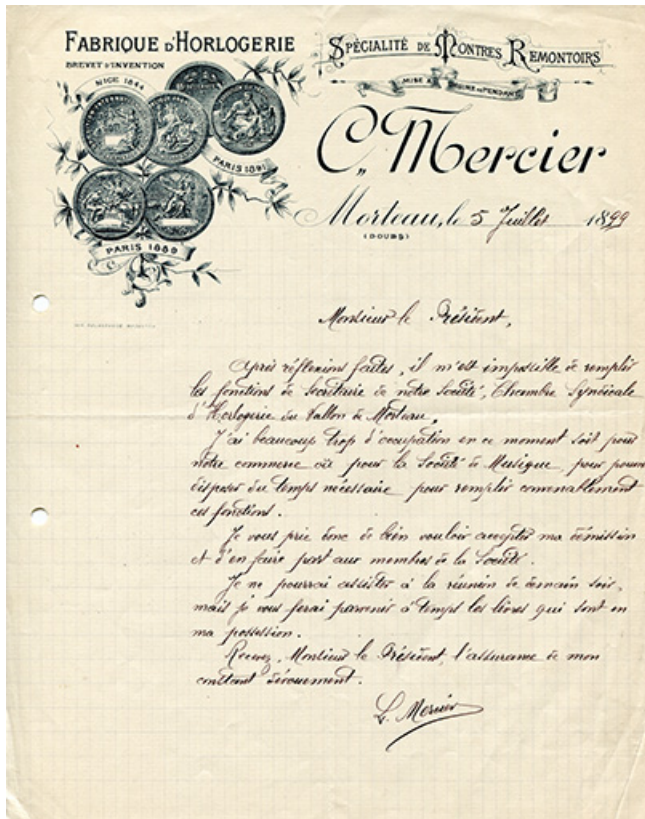 FABRIQUE D'HORLOGERIE
BREVET D'INVENTION
NICE 1844
PARIS 1891
PARIS 1889
SPÉCIALITÉ DE MONTRES REMONTOIRS
MISE À L'HEURE AU PENDANT
C. Mercier
Morteau, le 5 Juillet 1899
(DOUBS)
Monsieur le Président,
Après réflexions faites, il m'est impossible de remplir
les fonctions de Secrétaire de notre Société, Chambre Syndicale
d'Horlogerie du Vallon de Morteau.
J'ai beaucoup trop d'occupation en ce moment soit pour
notre commerce ou pour la Société de Musique, pour pouvoir
disposer du temps nécessaire pour remplir convenablement
ces fonctions.
Je vous prie donc de bien vouloir accepter ma démission
et d'en faire part aux membres de la Société.
Je ne pourrai assister à la réunion de demain soir,
mais je vous ferai parvenir à temps les livres qui sont en
ma possession.
Recevez, Monsieur le Président, l'assurance de mon
constant dévouement.
L. Mercier